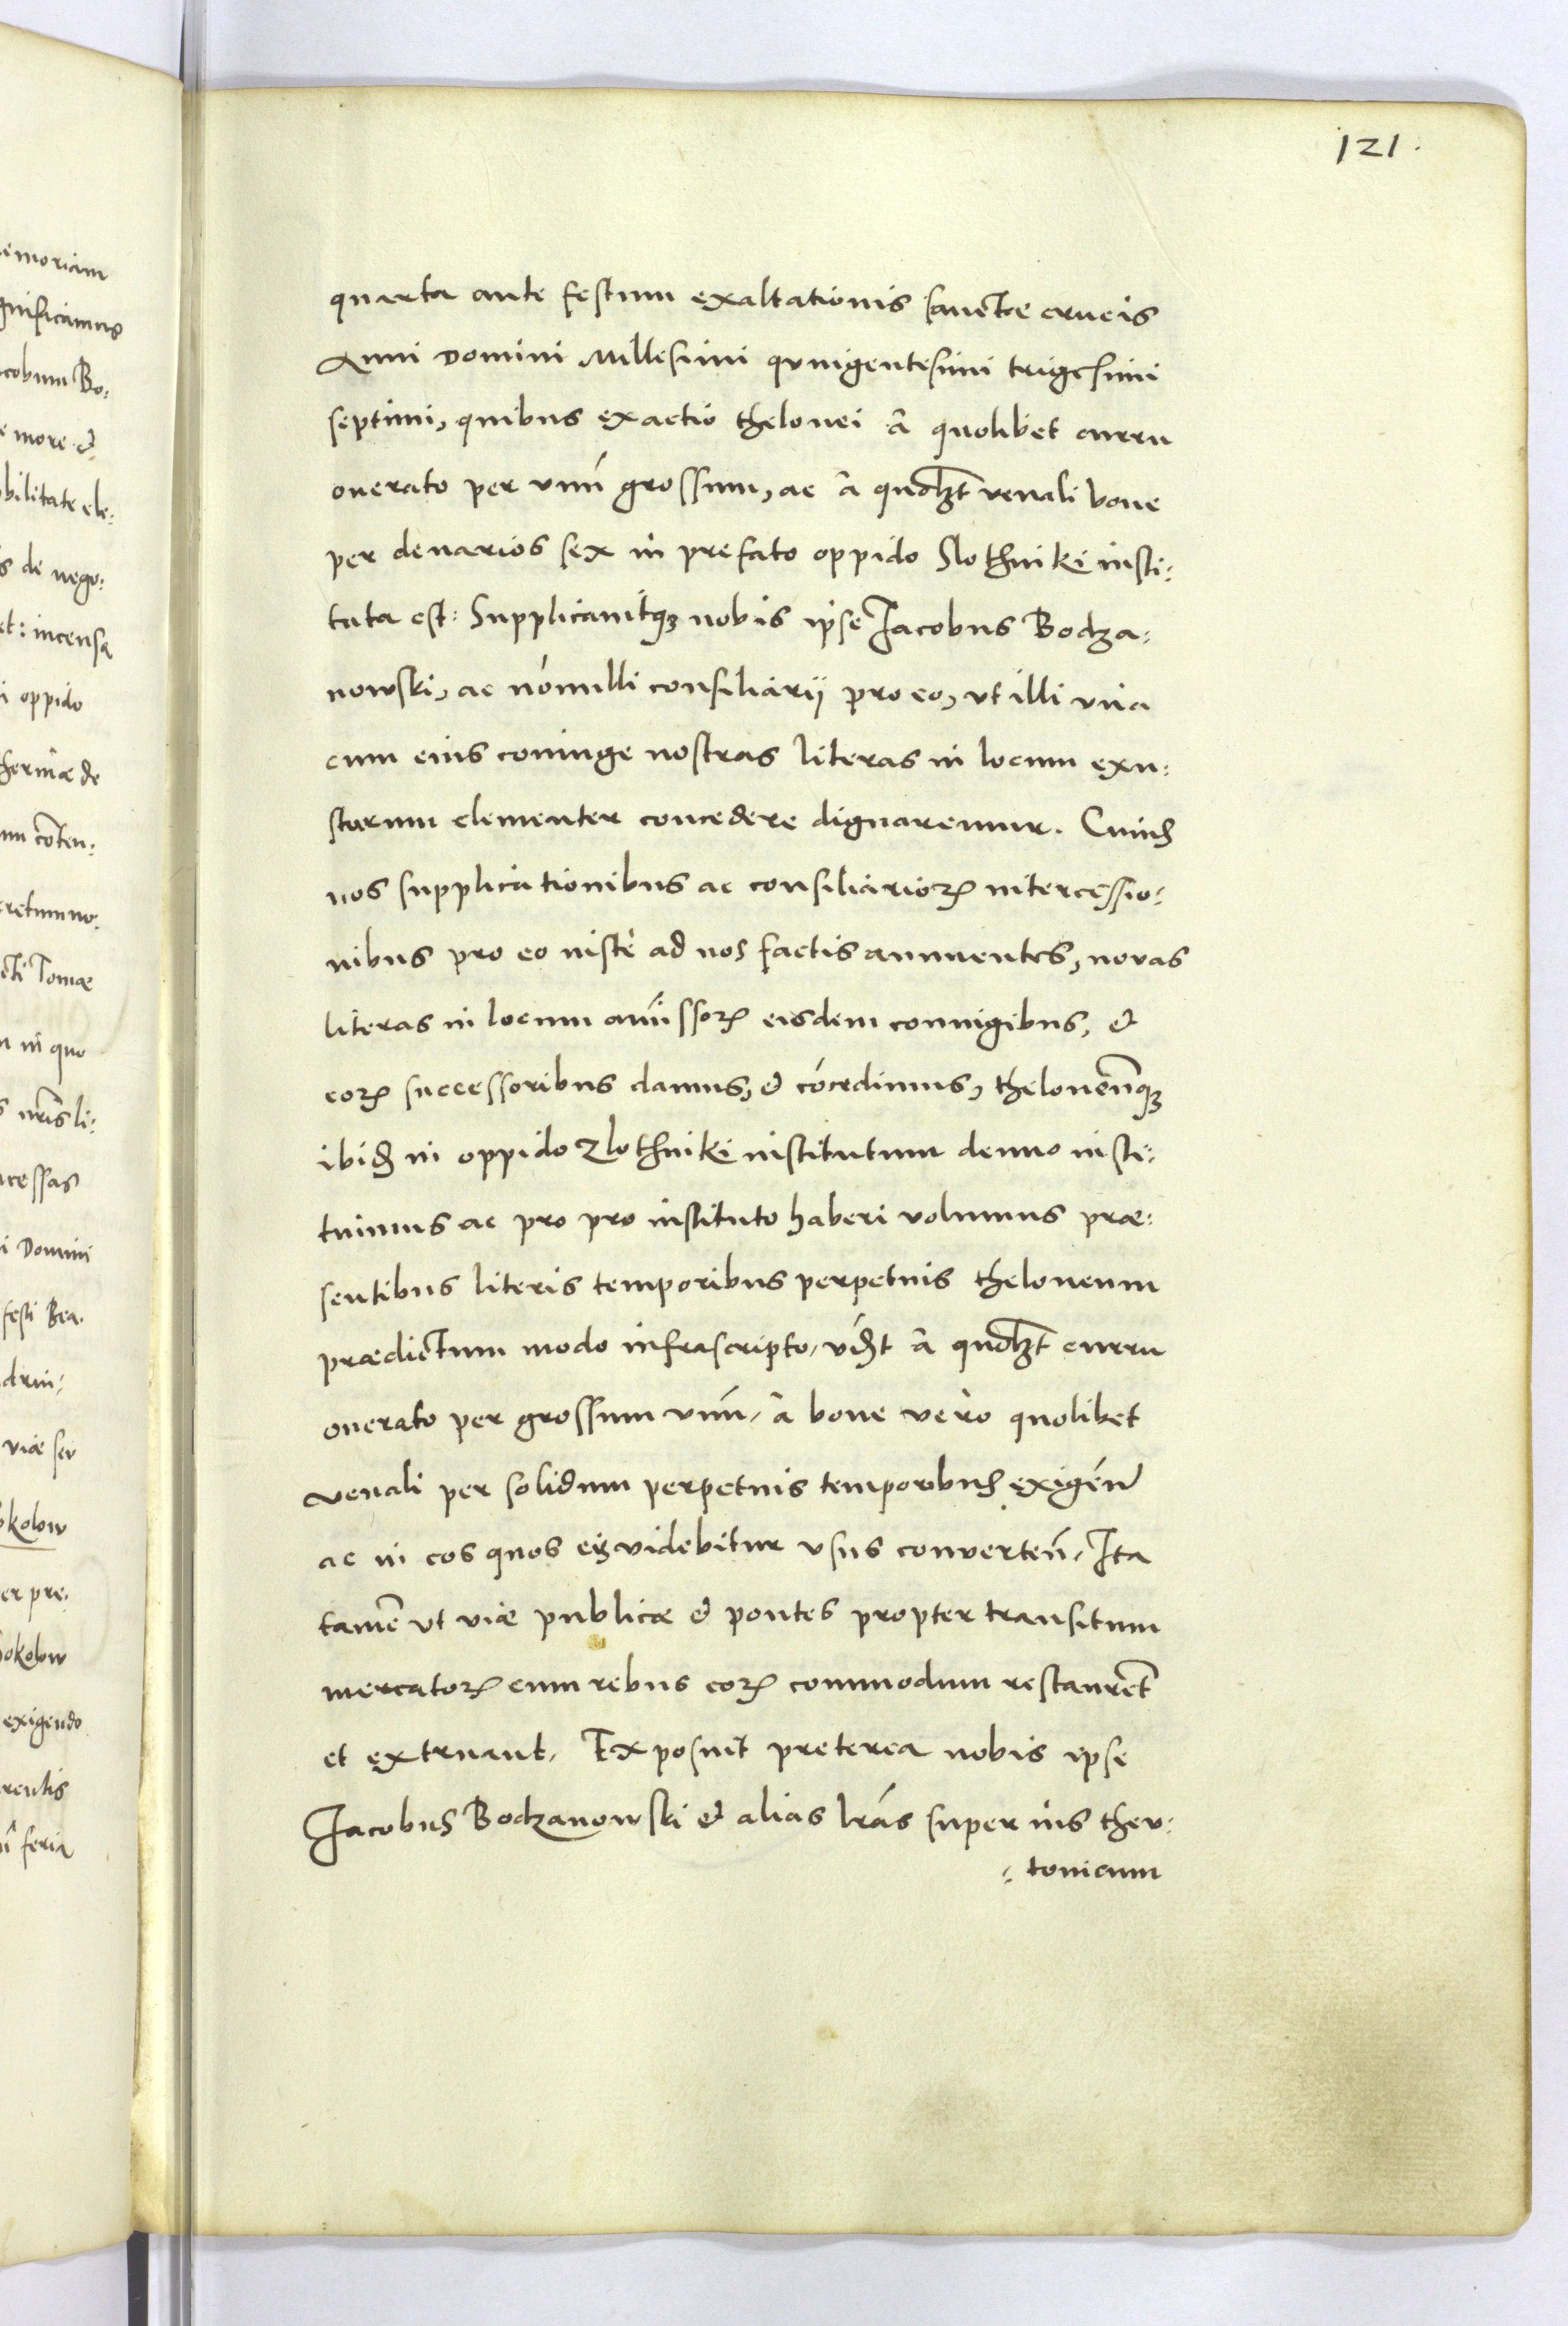 121.
quarta ante festum exaltationis sanctæ crucis
Anni Domini Millesimi quingentesimi trigesimi
septimi, quibus exactio thelonei à quolibet curru
onerato per vnū grossum, ac à quolꝫt venali boue
per denarios sex in prefato oppido Slothniki insti:
tuta est: Supplicauitqꝫ nobis ipse Jacobus Bodza:
nowski, ac nōnulli consiliarij pro eo, vt illi vna
cum eius coniuge nostras literas in locum exu:
starum clementer concedere dignaremur. Cuius
nos supplicationibus ac consiliarioꝝ intercessio:
nibus pro eo iustè ad nos factis annuentes, novas
literas in locum amissoꝝ eisdem coniugibus, &
eoꝝ successoribus damus, & cōcedimus, theloneūqꝫ
ibidē in oppido Zlothniki institutum denuo insti:
tuimus ac pro pro instituto haberi volumus præ:
sentibus literis temporibus perpetuis theloneum
prædictum modo infrascripto, vidꝫt à quolꝫt curru
onerato per grossum vnū, à boue verò quolibet
venali per solidum perpetuis temporibus exigen̄
ac in eos quos eis videbitur vsus converten̄, Ita
tamē vt viæ publicæ & pontes propter transitum
mercatoꝝ cum rebus eoꝝ commodum restaurēt
et extruant, Exposuit preterea nobis ipse
Jacobus Bodzanowski & alias lrās super ius theu:
: tonicum
emoriam
gnificamus
acobum Bo:
e more &
obilitate ele:
s de nego:
et: incensa
i oppido
um cōten:
cretum no:
cti Tomæ
n in quo
s nr̄is li:
ncessas
i Domini
festi Bea:
drin:
viæ seu
okolow
er pre:
okolow
exigendo
rculis
feria